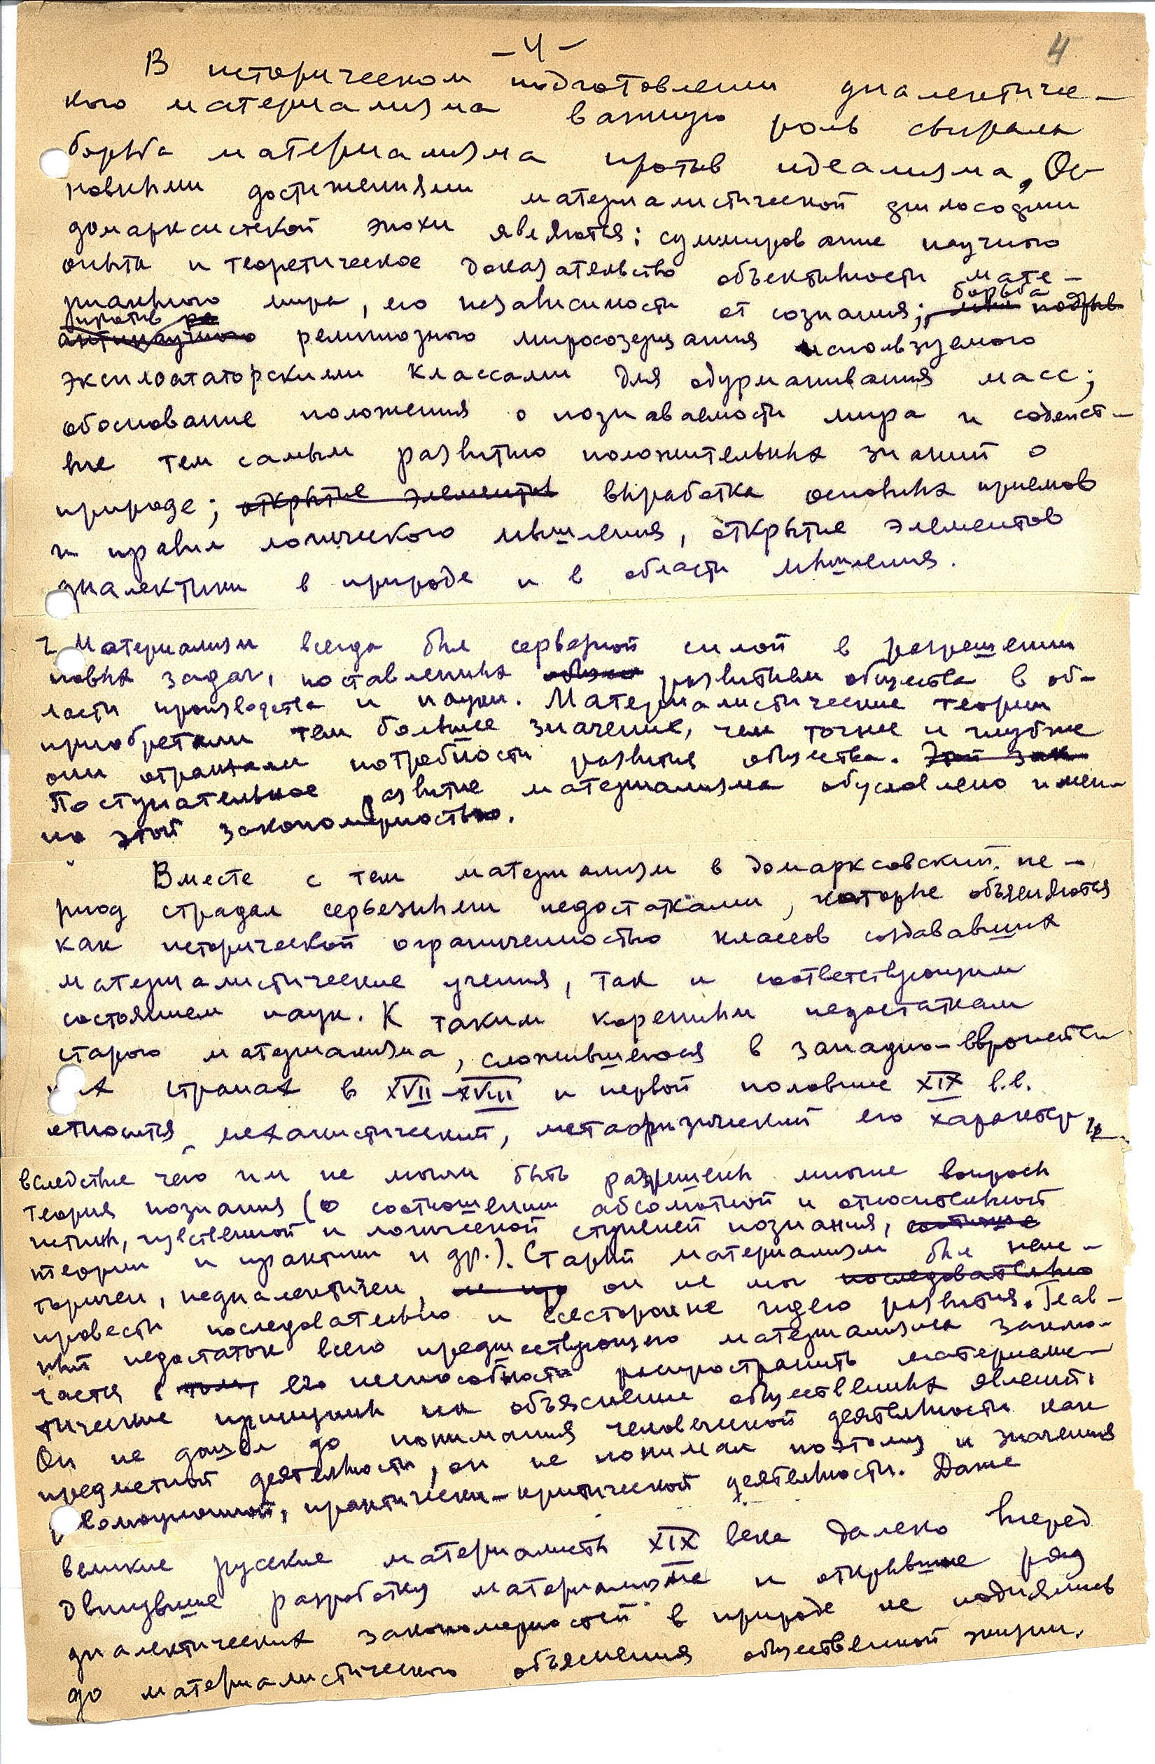 - 4 -
4
В историческом подготовлении диалектичес-
кого материализма важную роль сыграла
борьба материализма против идеализма. Ос-
новными достижениями материалистической философии
домарксистской эпохи являются: суммирование научного
опыта и теоретическое доказательство объективности мате-
риального мира, его независимости от сознания; борьба подрыв
против антинаучного религиозного миросозерцания используемого
эксплоататорскими классами для одурманивания масс;
обоснование положения о познаваемости мира и содейст-
вие тем самым развитию положительных знаний о
природе; открытие элементов выработка основных приемов
и правил логического мышления, открытие элементов
диалектики в природе и в области мышления.
Материализм всегда был серьезной силой в разрешении
новых задач, поставленных развитием общества в об-
ласти производства и науки. Материалистические теории
приобретали тем большее значение, чем точнее и глубже
они отражали потребности развития общества. Этой зак
Поступательное развитие материализма обусловлено имен-
но этой закономерностью.
Вместе с тем материализм в домарксовский пе-
риод страдал серьезными недостатками, которые объясняются
как исторической ограниченностью классов создававших
материалистические учения, так и соответствующим
состоянием наук. К таким коренным недостаткам
старого материализма, сложившегося в западно-европейск
их странах в XVII-XVIII и первой половине XIX в.в.
относится механистический, метафизический его характер,
вследствие чего им не могли быть разрешены многие вопросы
теории познания (о соотношении абсолютной и относительной
истины, чувственной и логической ступеней познания,
теории и практики и др.). Старый материализм был неис-
торичен, недиалектичен, он не мог последовательно
провести последовательно и всесторонне идею развития. Глав-
ный недостаток всего предшествующего материализма заклю-
чается в том, его неспособности распространить материалис-
тические принципы на объяснение общественных явлений.
Он не дошел до понимания человеческой деятельности как
предметной деятельности, он не понимал поэтому и значения
революционной, практически-критической деятельности. Даже
великие русские материалисты XIX века далеко вперед
двинувшие разработку материализма и открывшие ряд
диалектических закономерностей в природе не поднялись
до материалистического объяснения общественной жизни.